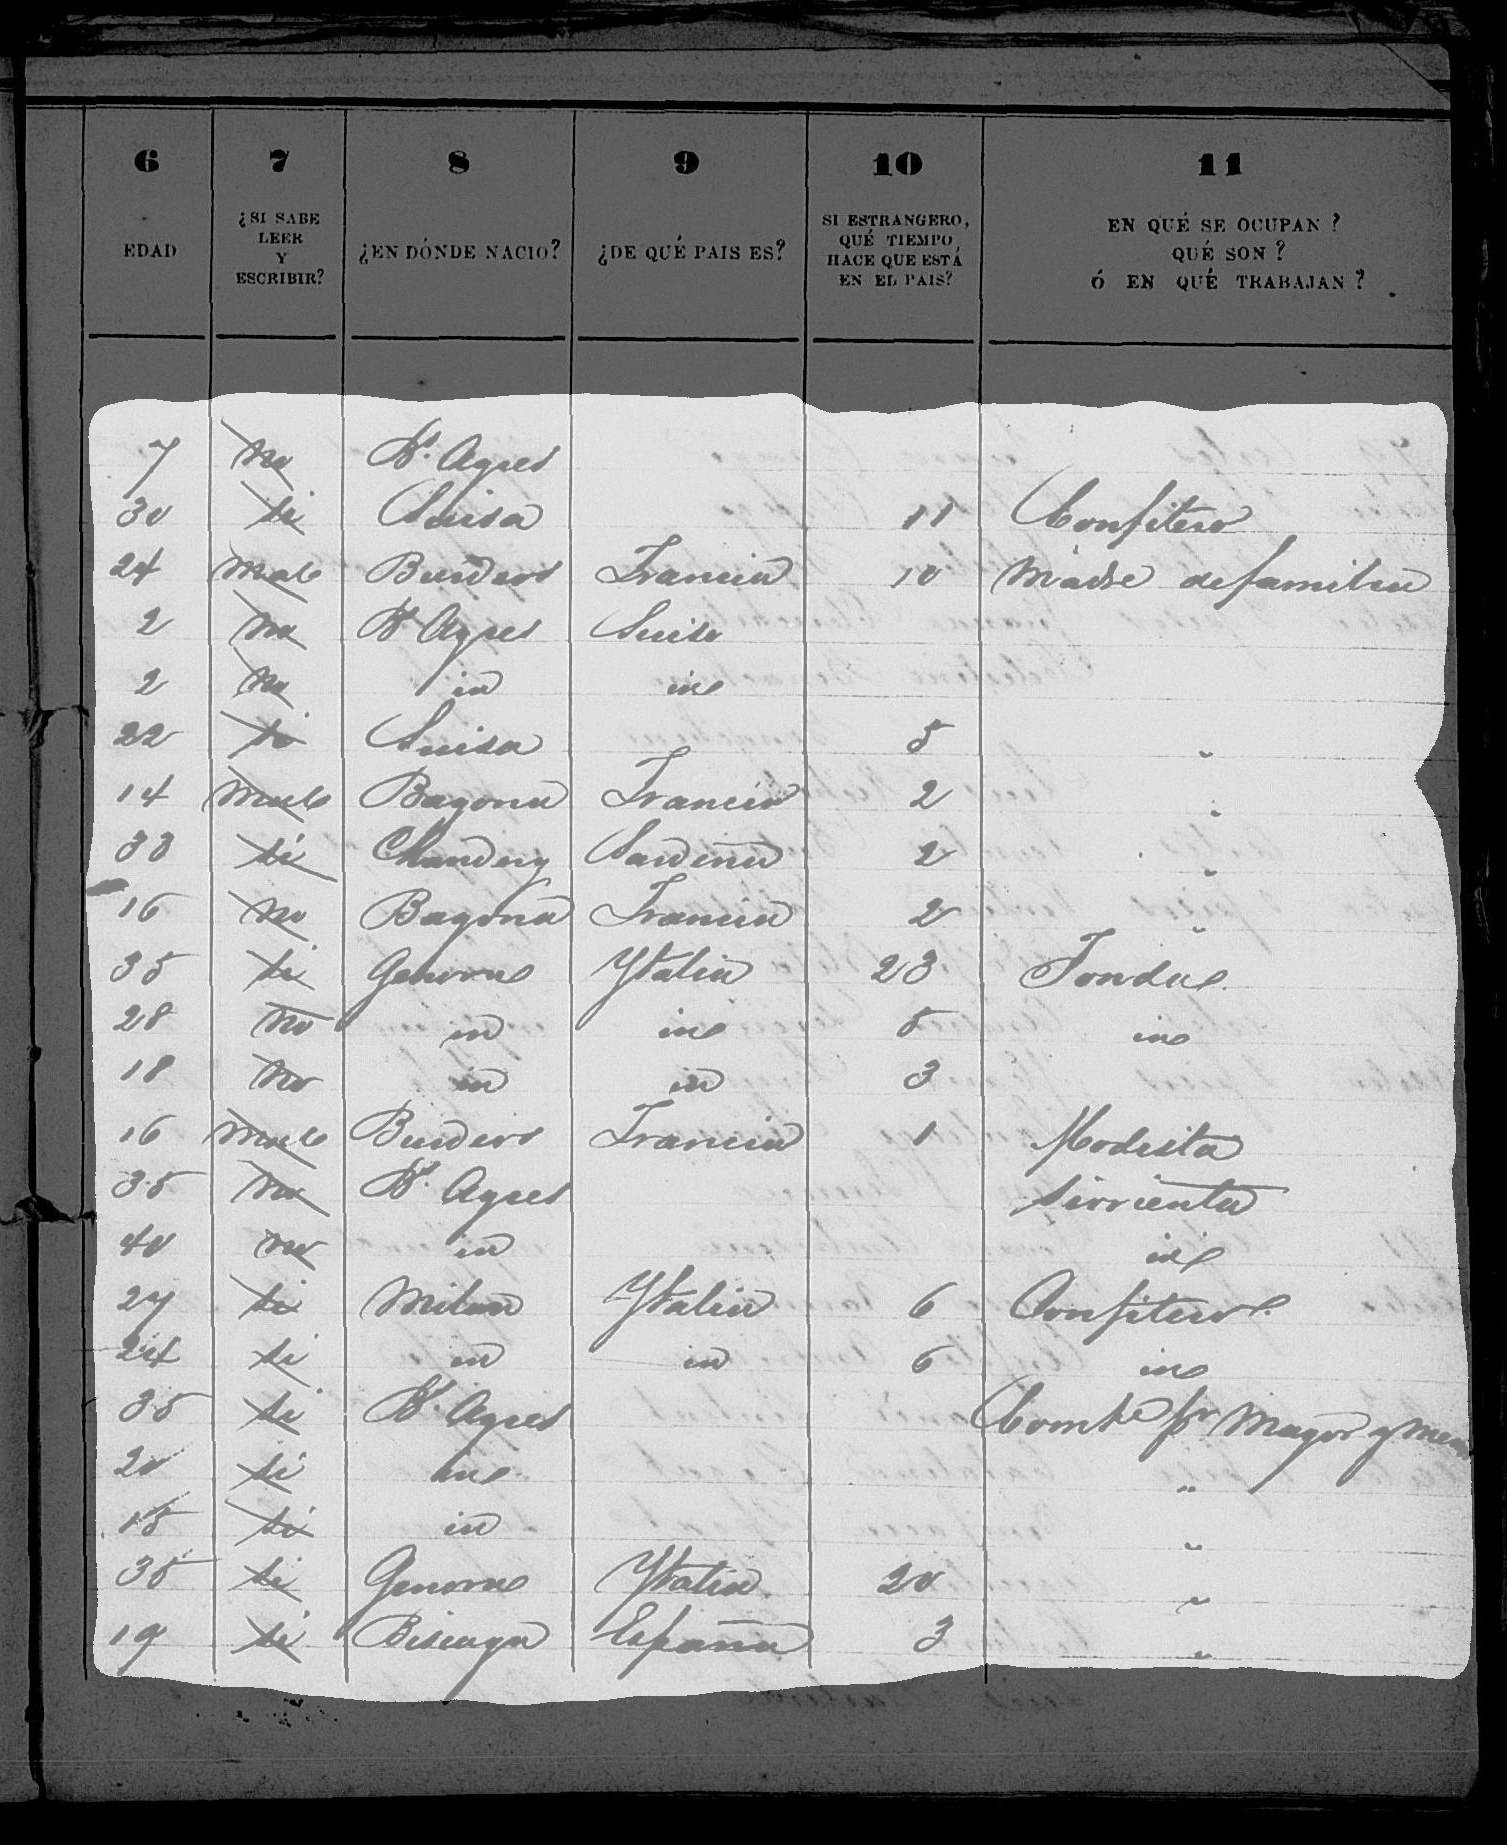 6 7 8 9 10 11
EDAD ¿SI SABE LEER Y ESCRIBIR? ¿EN DÓNDE NACIO? ¿DE QUÉ PAIS ES? SI ESTRANGERO, QUÉ TIEMPO HACE QUE ESTÁ EN EL PAIS? EN QUÉ SE OCUPAN? QUÉ SON? Ó EN QUÉ TRABAJAN?
7 no Bs. Ayres
30 si Suisa 11 Confitero
24 mal Burdeos Francia 10 Madre de familia
2 no Bs Ayres Suisa
2 no id id
22 si Suisa 5 "
14 mal Bayona Francia 2 "
33 si Sardeña 2 "
16 no Bayona Francia 2 "
35 si Genova Ytalia 23 Fonda
28 no id id 5 id
18 no id id 3
16 mal Burdeos Francia 1 Modista
35 no Bs. Ayres sirvienta
40 no id id
27 si Milan Ytalia 6 Confitero
24 si id id 6 id
35 si Bs. Ayres Comte pr Mayor y men
20 si id "
15 si id "
35 si Genova Ytalia 20 "
19 si Biscaya España 3 "